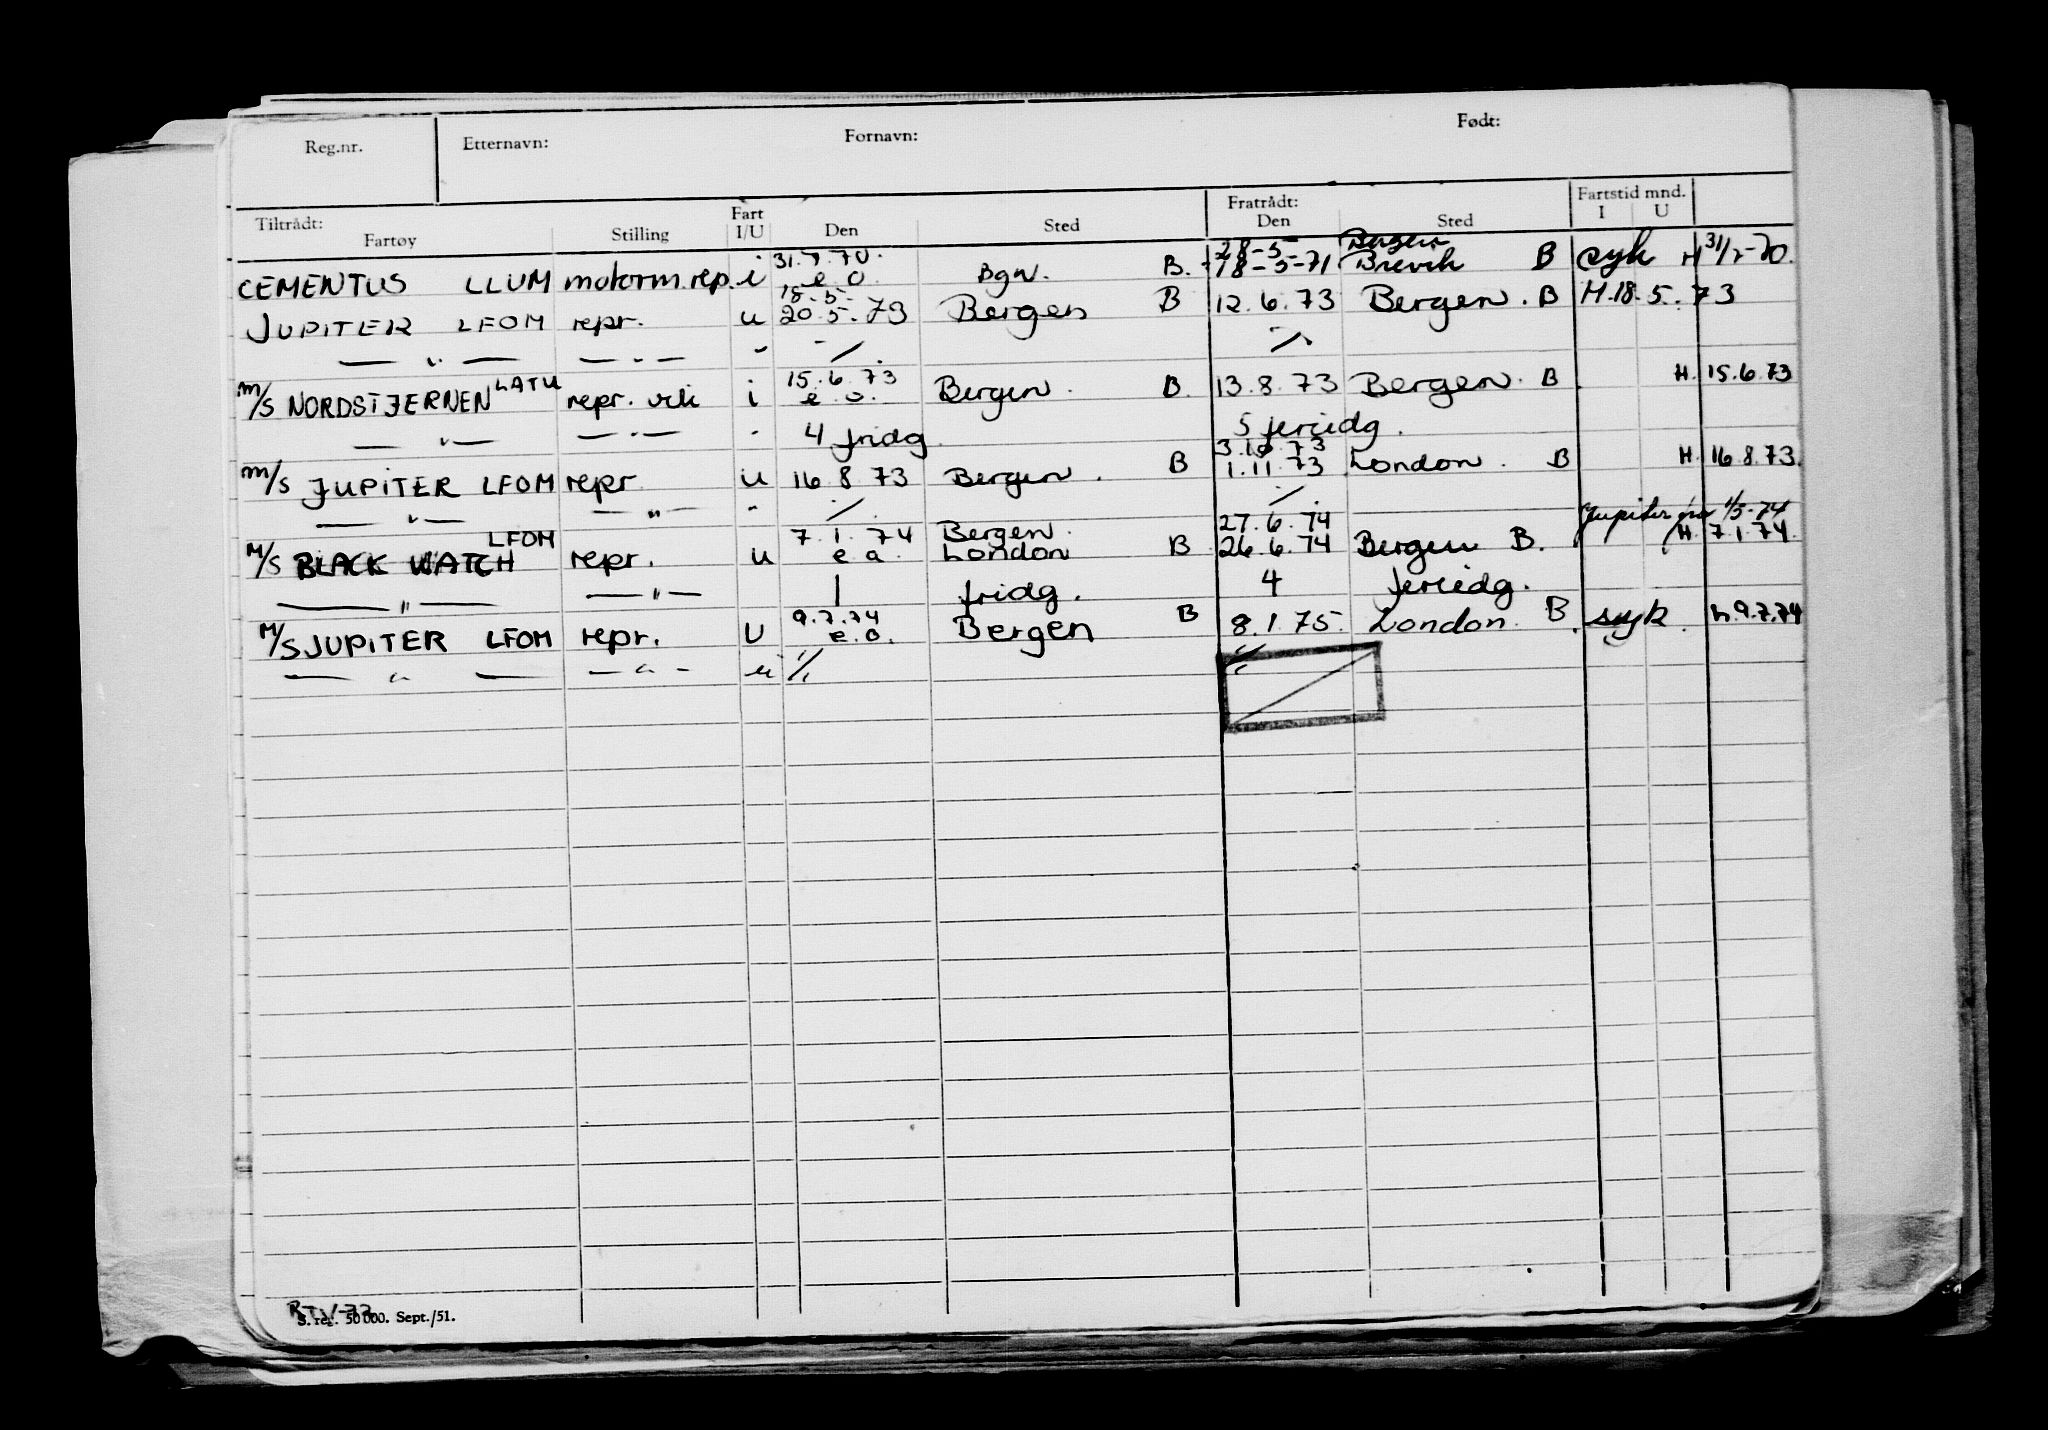 Reg.nr. Etternavn: Fornavn: Født:
Tiltrådt: Fratrådt: Fartstid mnd.
Fartøy Stilling Fart I/U Den Sted Den Sted I U
31.7.70. 28-5- Bergen
CEMENTUS LLUM motorm.rep. i e o Bgn. B. 18-5-71 Brevik B syk H 31/7-70.
18-5-
JUPITER LFOM repr. u 20.5.73 Bergen B 12.6.73 Bergen. B H.18.5.73
— " — — " — - /. /.
LATU 15.6.73
M/S NORDSTJERNEN repr. vik i e.o. Bergen. B. 13.8.73 Bergen. B. H. 15.6.73
— " — — " — - 4 fridg. 5 feriedg.
3.10.73
M/S JUPITER LFOM repr u 16.8.73 Bergen. B 1.11.73 London. B H. 16.8.73.
— " — — " — - /. /. Jupiter 1/5-74
LFOM 7.1.74 Bergen. 27.6.74
M/S BLACK WATCH repr. u e o. London B 26.6.74 Bergen B. H. 7.1.74.
— " — — " — 1 fridg. 4 feriedg.
9.7.74
M/S JUPITER LFOM repr. U e.o. Bergen B 8.1.75. London. B. syk. h.9.7.74
— " — — " — u /. /.
RTV-77
S. reg. 50 000. Sept./51.